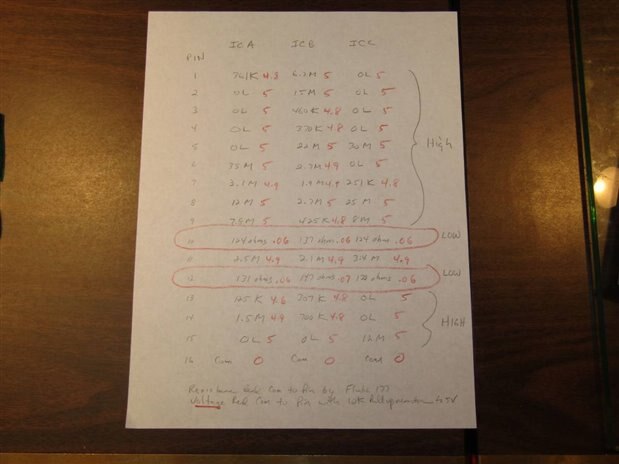 ICA ICB ICC
PIN
1 761K 4.8 6.2M 5 OL 5
2 OL 5 15M 5 OL 5
3 OL 5 460K 4.8 OL 5
4 OL 5 370K 4.8 OL 5
5 OL 5 22M 5 30M 5
6 35M 5 2.7M 4.9 OL 5
7 3.1M 4.9 1.9M 4.9 251K 4.8
8 12M 5 2.7M 5 25M 5
9 7.8M 5 425K 4.8 8M 5
High
10 124 ohms .06 137 ohms .06 124 ohms .06 LOW
11 2.5M 4.9 2.1M 4.9 3.4M 4.9
12 131 ohms .06 147 ohms .07 122 ohms .06 LOW
13 125K 4.6 707K 4.8 OL 5
14 1.5M 4.9 700K 4.8 OL 5
15 OL 5 OL 5 12M 5
HIGH
16 Com 0 Com 0 Com 0
Resistance Red Com to Pin by Fluke 177
Voltage Red Com to Pin with 10K Pullup resistor to 5V